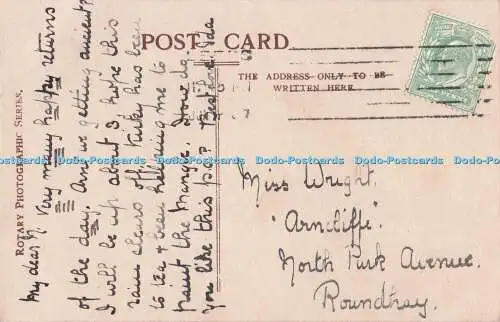 POST CARD
THE ADDRESS ONLY TO BE
WRITTEN HERE.
ROTARY PHOTOGRAPHIC SERIES.
My dear N Very many happy returns
of the day. Are we getting ancient?
I will be up about 3 hope this
rain clears off. Parky has been
to tea & been helping me to
paint the mangle. How do
you like this p.c? Best love Ida
Miss Wright.
"Arncliffe".
North Park Avenue.
Roundhay.
Dodo-Postcards Dodo-Postcards Dodo-Postcards Dodo-Postcards Dodo-Postcards Dodo-Postcards